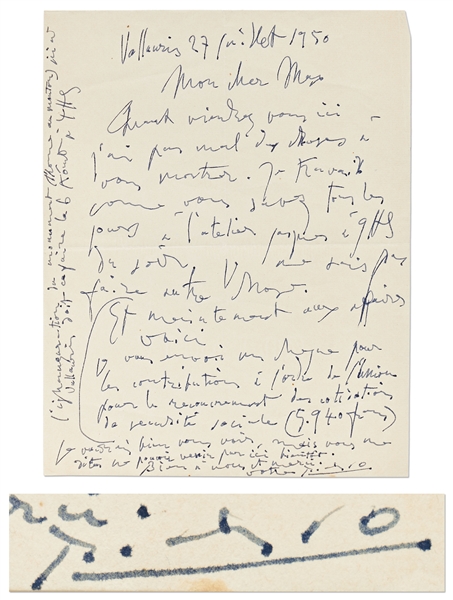 Vallauris 27 juillet 1950
Mon cher Max
Quand viendrez vous ici
j'ai pas mal des choses à
vous montrer. Je travaille
comme vous savez tous les
jours à l'atelier jusques à 9 HS
du soir, ne sais pas
faire autre chose.
Et maintenant aux affaires
Et voici
Je vous envoie un chèque pour
les contributions à l'ordre de l'Union
pour le recouvrement des cotisations
de sécurité sociale (5.940 francs)
Je voudrais bien vous voir, mais vous me
dites ne pouvoir venir par ici bientôt.
Bien à vous et merci.
votre Picasso
l'inauguration du monument Homme au mouton
Vallauris doit se faire le 6 Août à
Picasso